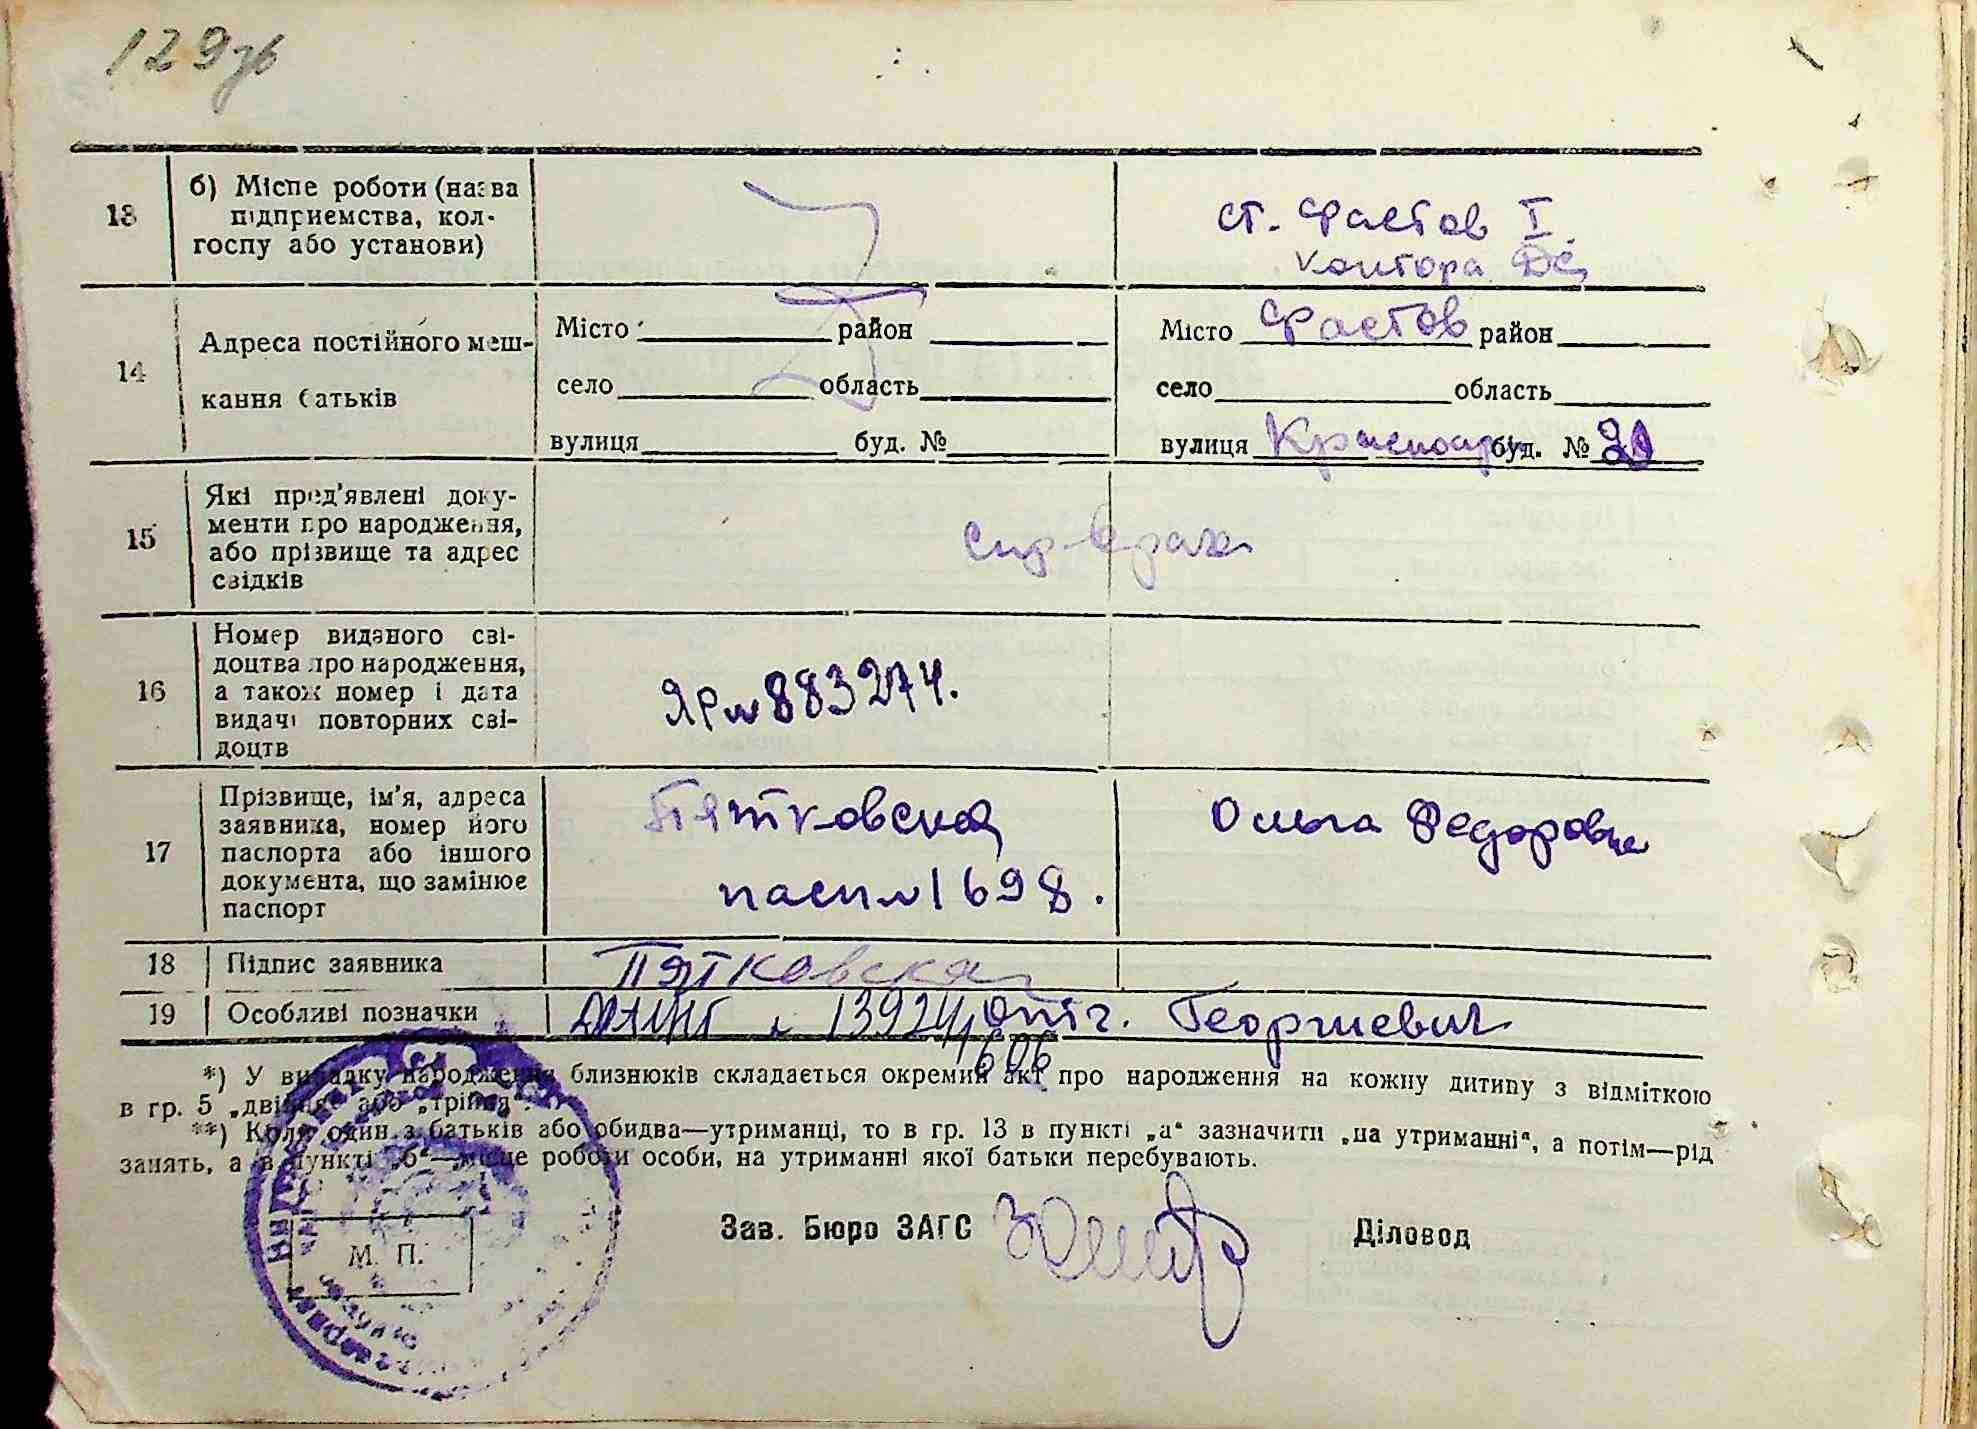 129зв
13
б) Місце роботи (назва
підприємства, кол-
госпу або установи)
ст. Фастов I.
контора ДС
14
Адреса постійного меш-
кання батьків
Місто район
село область
вулиця буд. №
Місто Фастов район
село область
вулиця Красноар буд. № 20
15
Які пред'явлені доку-
менти про народження,
або прізвище та адрес
свідків
Спр врача
16
Номер виданого сві-
доцтва про народження,
а також номер і дата
видачі повторних сві-
доцтв
ЯР № 883274.
17
Прізвище, ім'я, адреса
заявника, номер його
паспорта або іншого
документа, що замінює
паспорт
Пятковская Ольга Федоровна
пасп № 1698.
18
Підпис заявника
Пятковская
19
Особливі позначки
13924 отч. Георгиевич
606
*) У випадку народження близнюків складається окремий акт про народження на кожну дитину з відміткою
в гр. 5 „двійня“ або „трійня“.
**) Коли один з батьків або обидва—утриманці, то в гр. 13 в пункті „а“ зазначити „на утриманні“, а потім—рід
занять, а в пункті „б“—місце роботи особи, на утриманні якої батьки перебувають.
Зав. Бюро ЗАГС
Діловод
М. П.